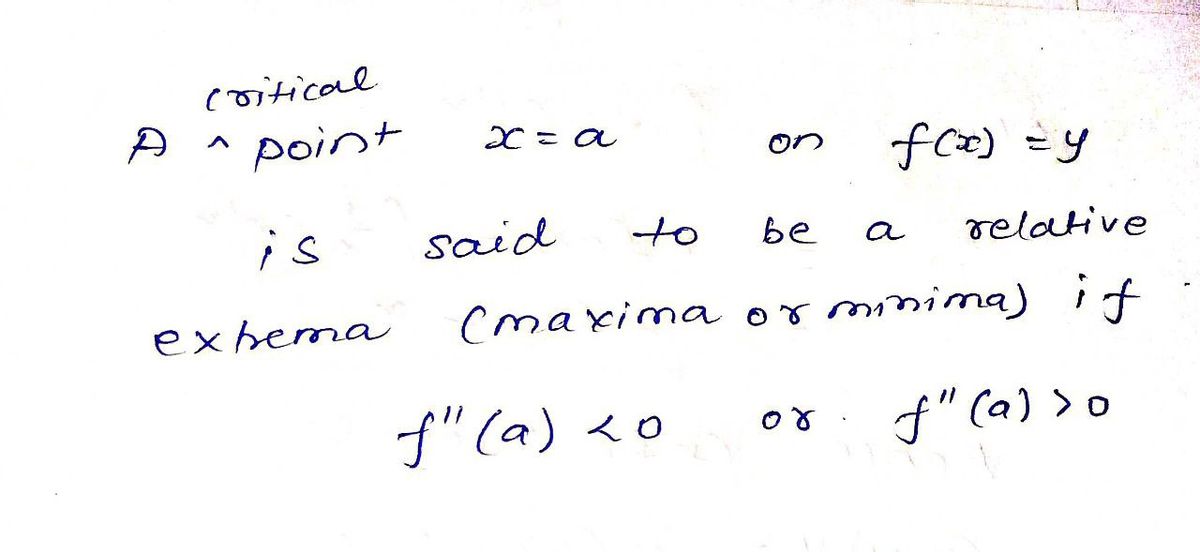 critical
A ^ point x = a on f(x) = y
is said to be a relative
extrema (maxima or minima) if
f''(a) < 0 or f''(a) > 0